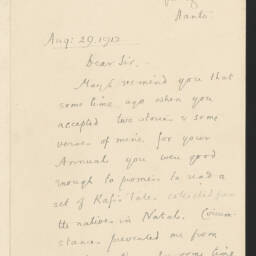 Hants.
Aug: 29. 1913
Dear Sir,
May I remind you that
some time ago when you
accepted two stories & some
verses of mine for your
Annuals you were good
enough to promise to read a
set of Kafir tales collected from
the natives in Natal. Circum-
stances prevented me from
some time